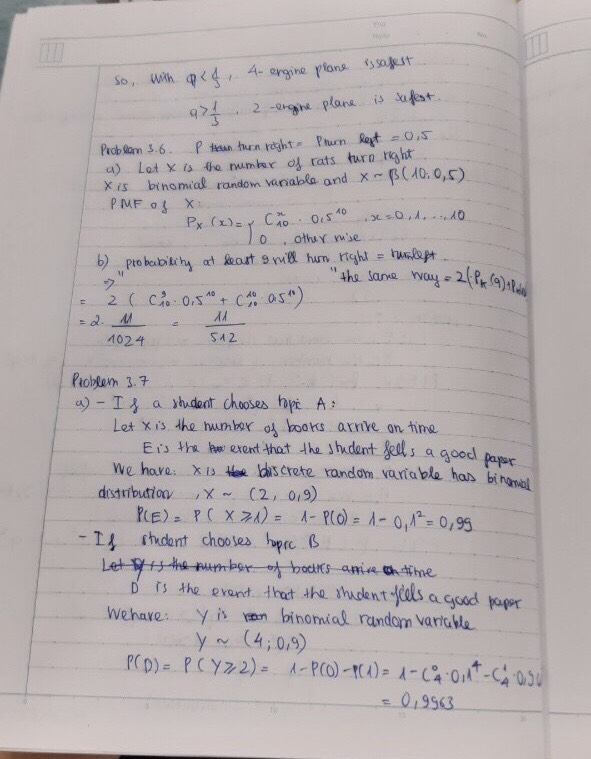 So, with q < 1/3, 4-engine plane is safest
q > 1/3, 2-engine plane is safest.
Problem 3.6. P turn right = P turn left = 0,5
a) Let X is the number of rats turn right
X is binomial random variable and X ~ β(10, 0,5)
PMF of X:
Px(x) = { C₁₀ˣ · 0,5¹⁰ , x = 0,1...,10
0 , other wise
b) probability at least 9 will turn right = turn left
=> " "the same way = 2(Px(9)+
= 2 ( C₁₀⁹ · 0,5¹⁰ + C₁₀¹⁰ 0,5¹⁰)
= 2 · 11/1024 = 11/512
Problem 3.7
a) - If a student chooses topic A:
Let X is the number of books arrive on time
E is the event that the student fells a good paper
We have: X is discrete random variable has binomial
distribution , X ~ (2, 0,9)
P(E) = P( X ⩾ 1) = 1 - P(0) = 1 - 0,1² = 0,99
- If student chooses topic B
Let Y is the number of books arrive on time
D is the event that the student fells a good paper
We have: Y is binomial random variable
Y ~ (4; 0,9)
P(D) = P( Y ⩾ 2) = 1 - P(0) - P(1) = 1 - C₄⁰ · 0,1⁴ - C₄¹ ·
= 0,9963